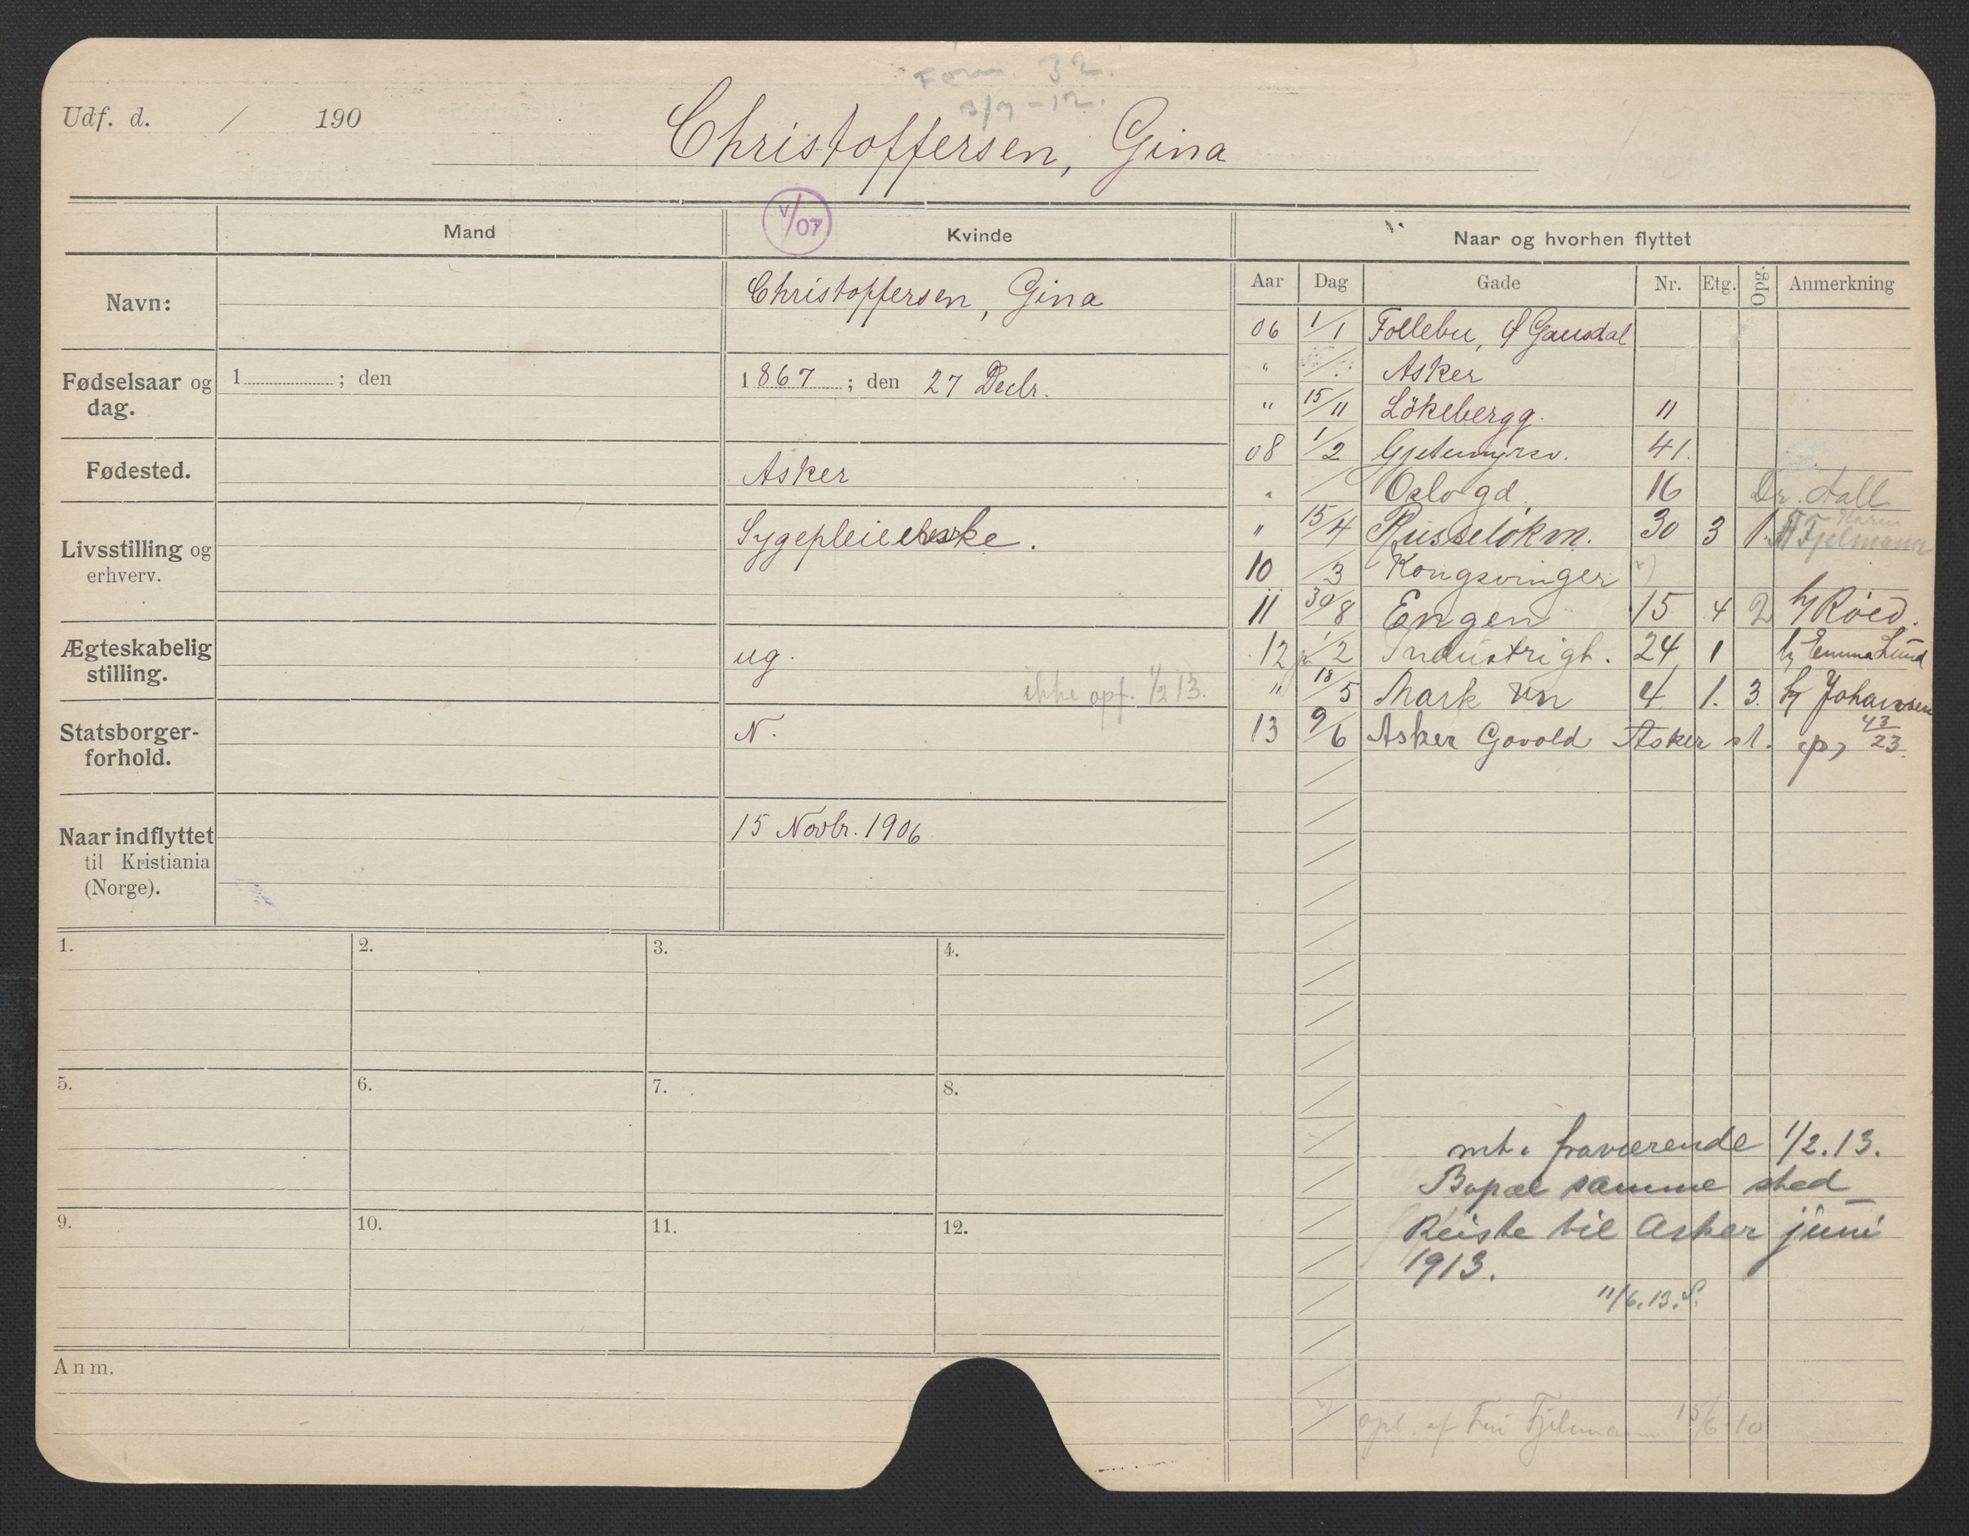 Form. 32.
3/7-12.
Udf. d. / 190
Christoffersen, Gina
V/07
Mand
Kvinde
Naar og hvorhen flyttet
Aar Dag Gade Nr. Etg. Opg. Anmerkning
Navn:
Christoffersen, Gina
Fødselsaar og dag.
1 ; den
1867 ; den 27 Decbr.
Fødested.
Asker
Livsstilling og erhverv.
Sygepleierske.
Ægteskabelig stilling.
ug.
ikke opf. 1/2 13.
Statsborger-forhold.
N.
Naar indflyttet til Kristiania (Norge).
15 Novbr. 1906
06 1/1 Follebu, Ø Gausdal
" / Asker
" 15/11 Lökebergg. 11
08 1/2 Gjetemyrsv. 41.
" / Oslogd. 16 Dr. Aall
" 15/4 Russeløkvn. 30 3 1. Karen Fjelmann
10 /3 Kongsvinger
11 30/8 Engen 15 4 2 h/ Røed.
12 1/2 Industrigt. 24 1 h/ Emma Lund
" 18/5 Markvn 4 1. 3. h/ Johansen
13 9/6 Asker Asker st. 43/23
1.
2.
3.
4.
5.
6.
7.
8.
9.
10.
11.
12.
mt. fraværende 1/2.13.
Bopæl samme sted
Reiste til Asker juni
1913.
11/6.13.S.
Anm.
opl. af Fjelmann 15/6 10